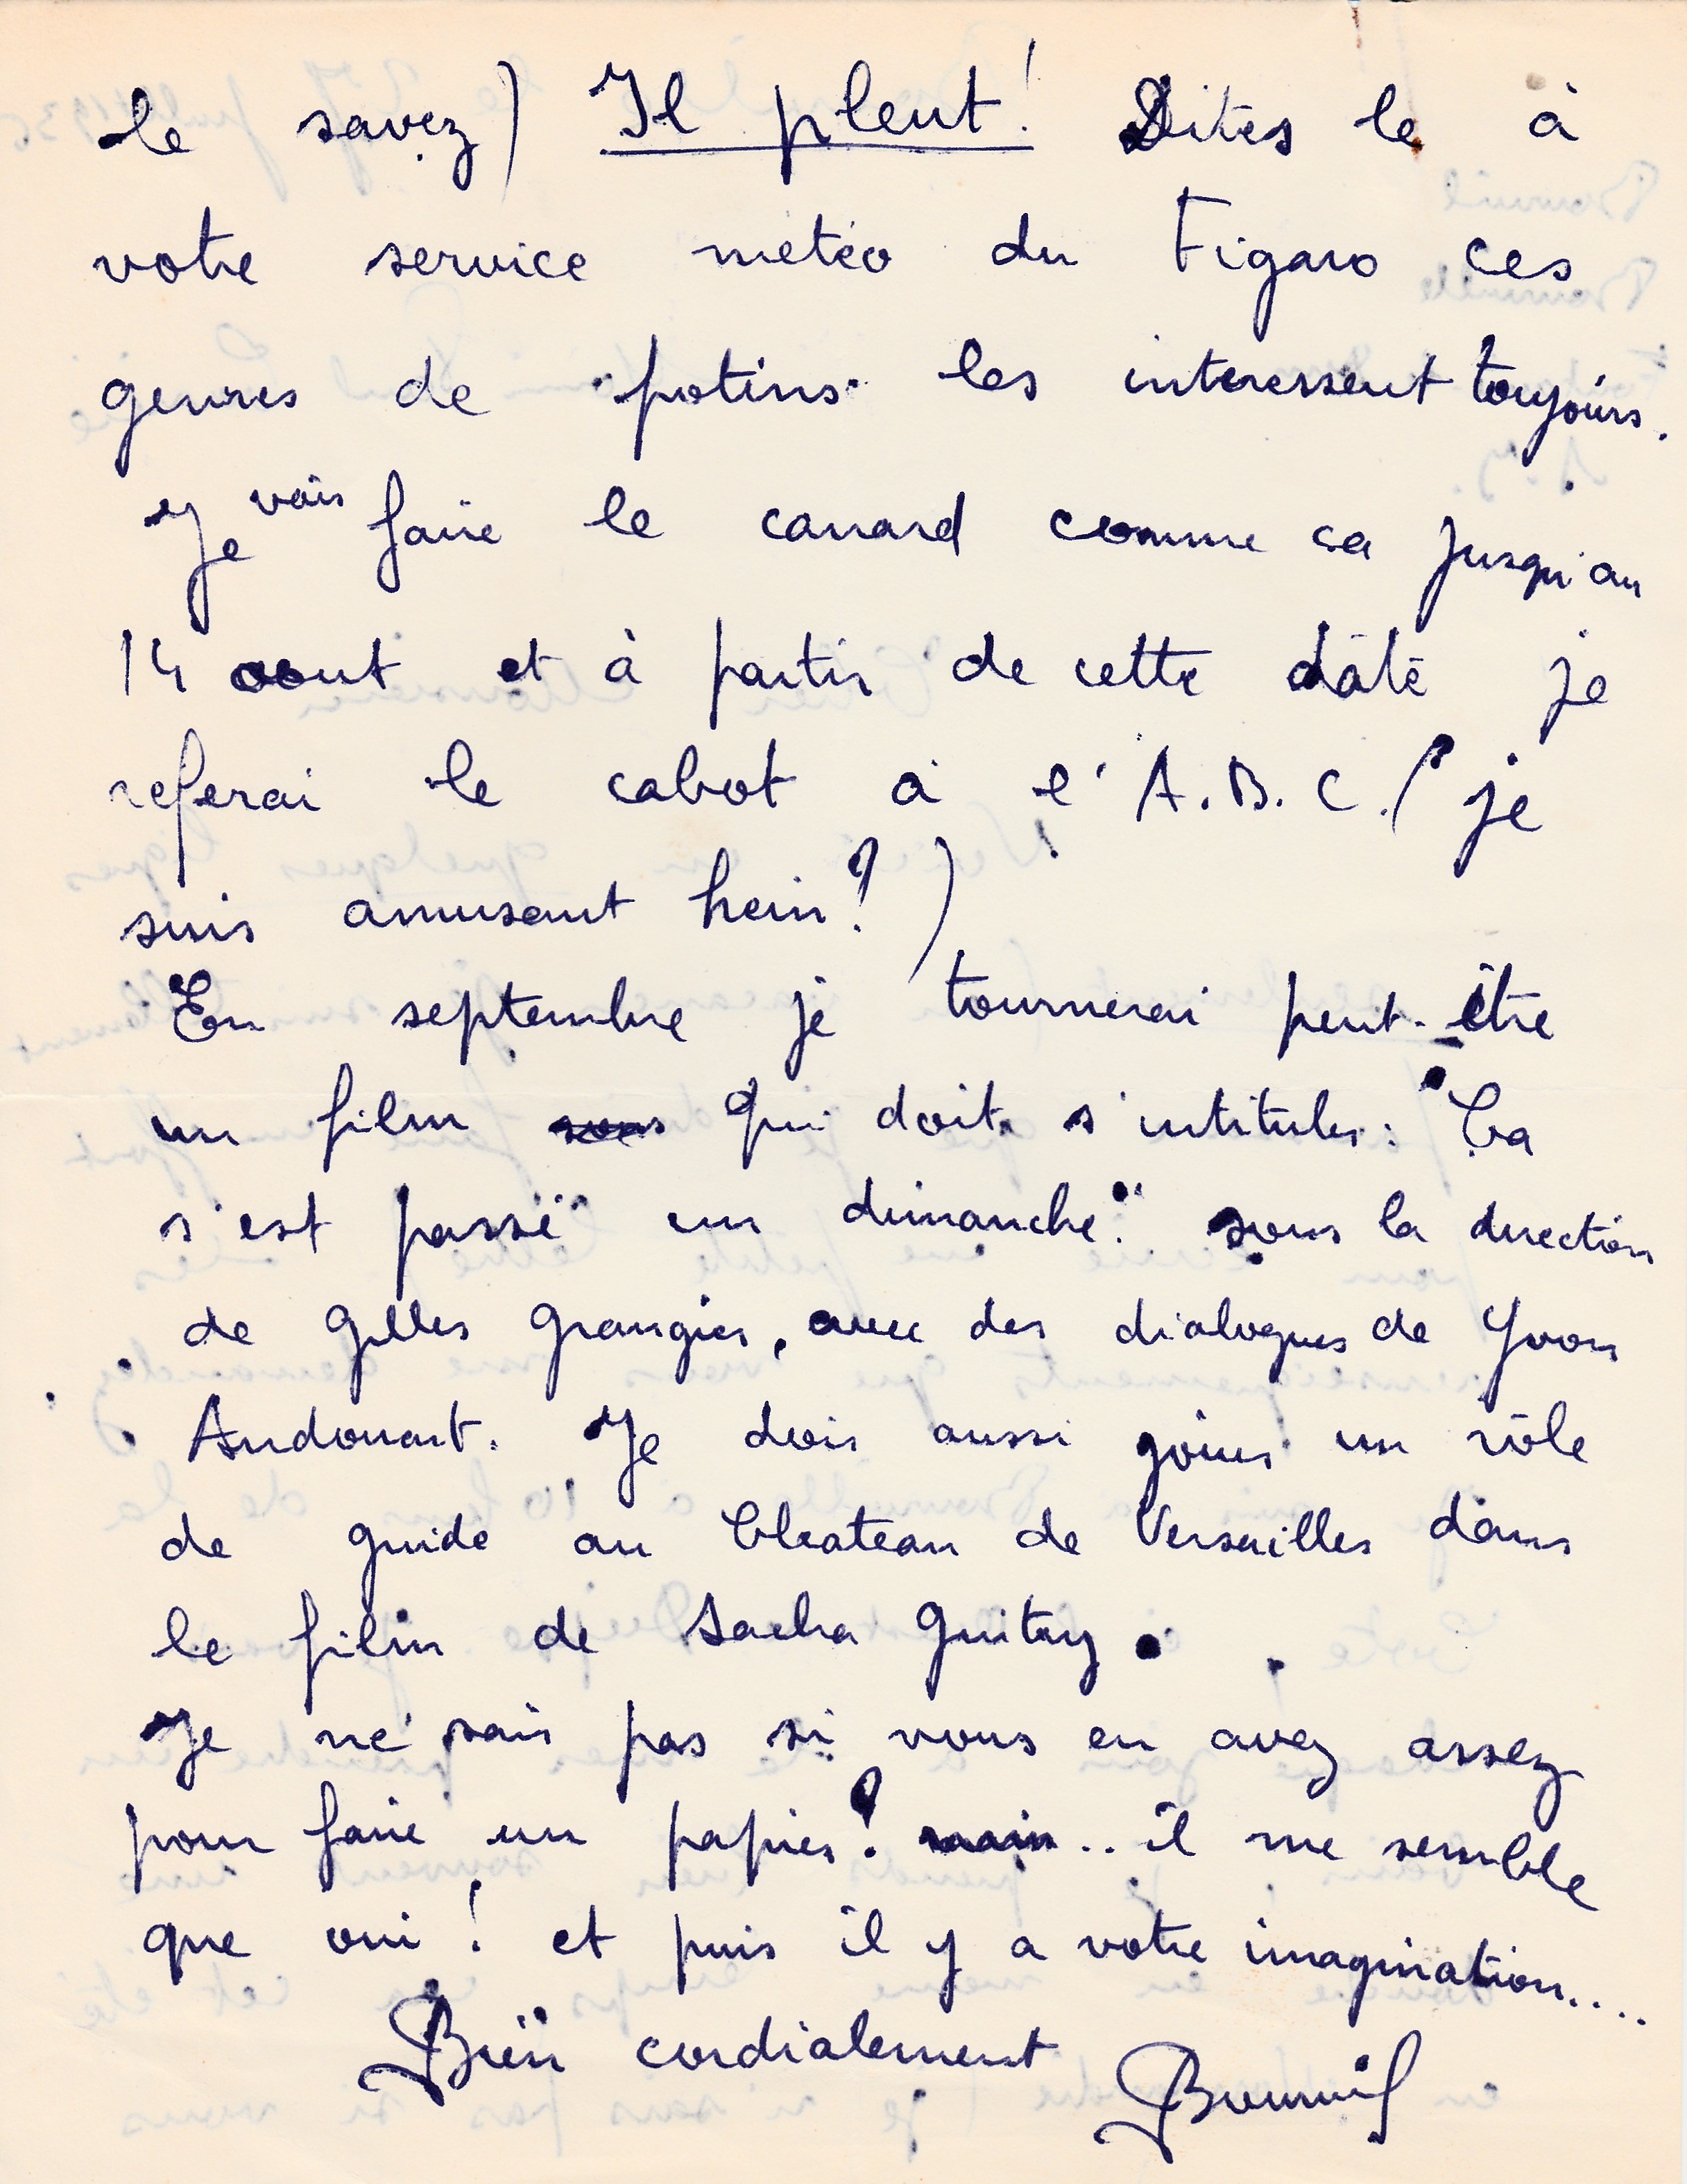 le savez) Il pleut! Dites le à
votre service méteo du Figaro ces
genres de "potins" les interessent toujours.
Je vais faire le canard comme ca jusqu'au
14 aout et à partir de cette date je
referai le cabot à l'A.B.C. (je
suis amusant hein?)
En septembre je tournerai peut-être
un film sous qui doit s'intituler: "Ca
s'est passé un dimanche". sous la direction
de Gilles Grangier, avec des dialogues de Yvon
Audouart. Je dois aussi jouer un rôle
de guide au Chateau de Versailles dans
le film de Sacha Guitry.
Je ne sais pas si vous en avez assez
pour faire un papier? mais.. il me semble
que oui! et puis il y a votre imagination....
Bien cordialement Bourvil